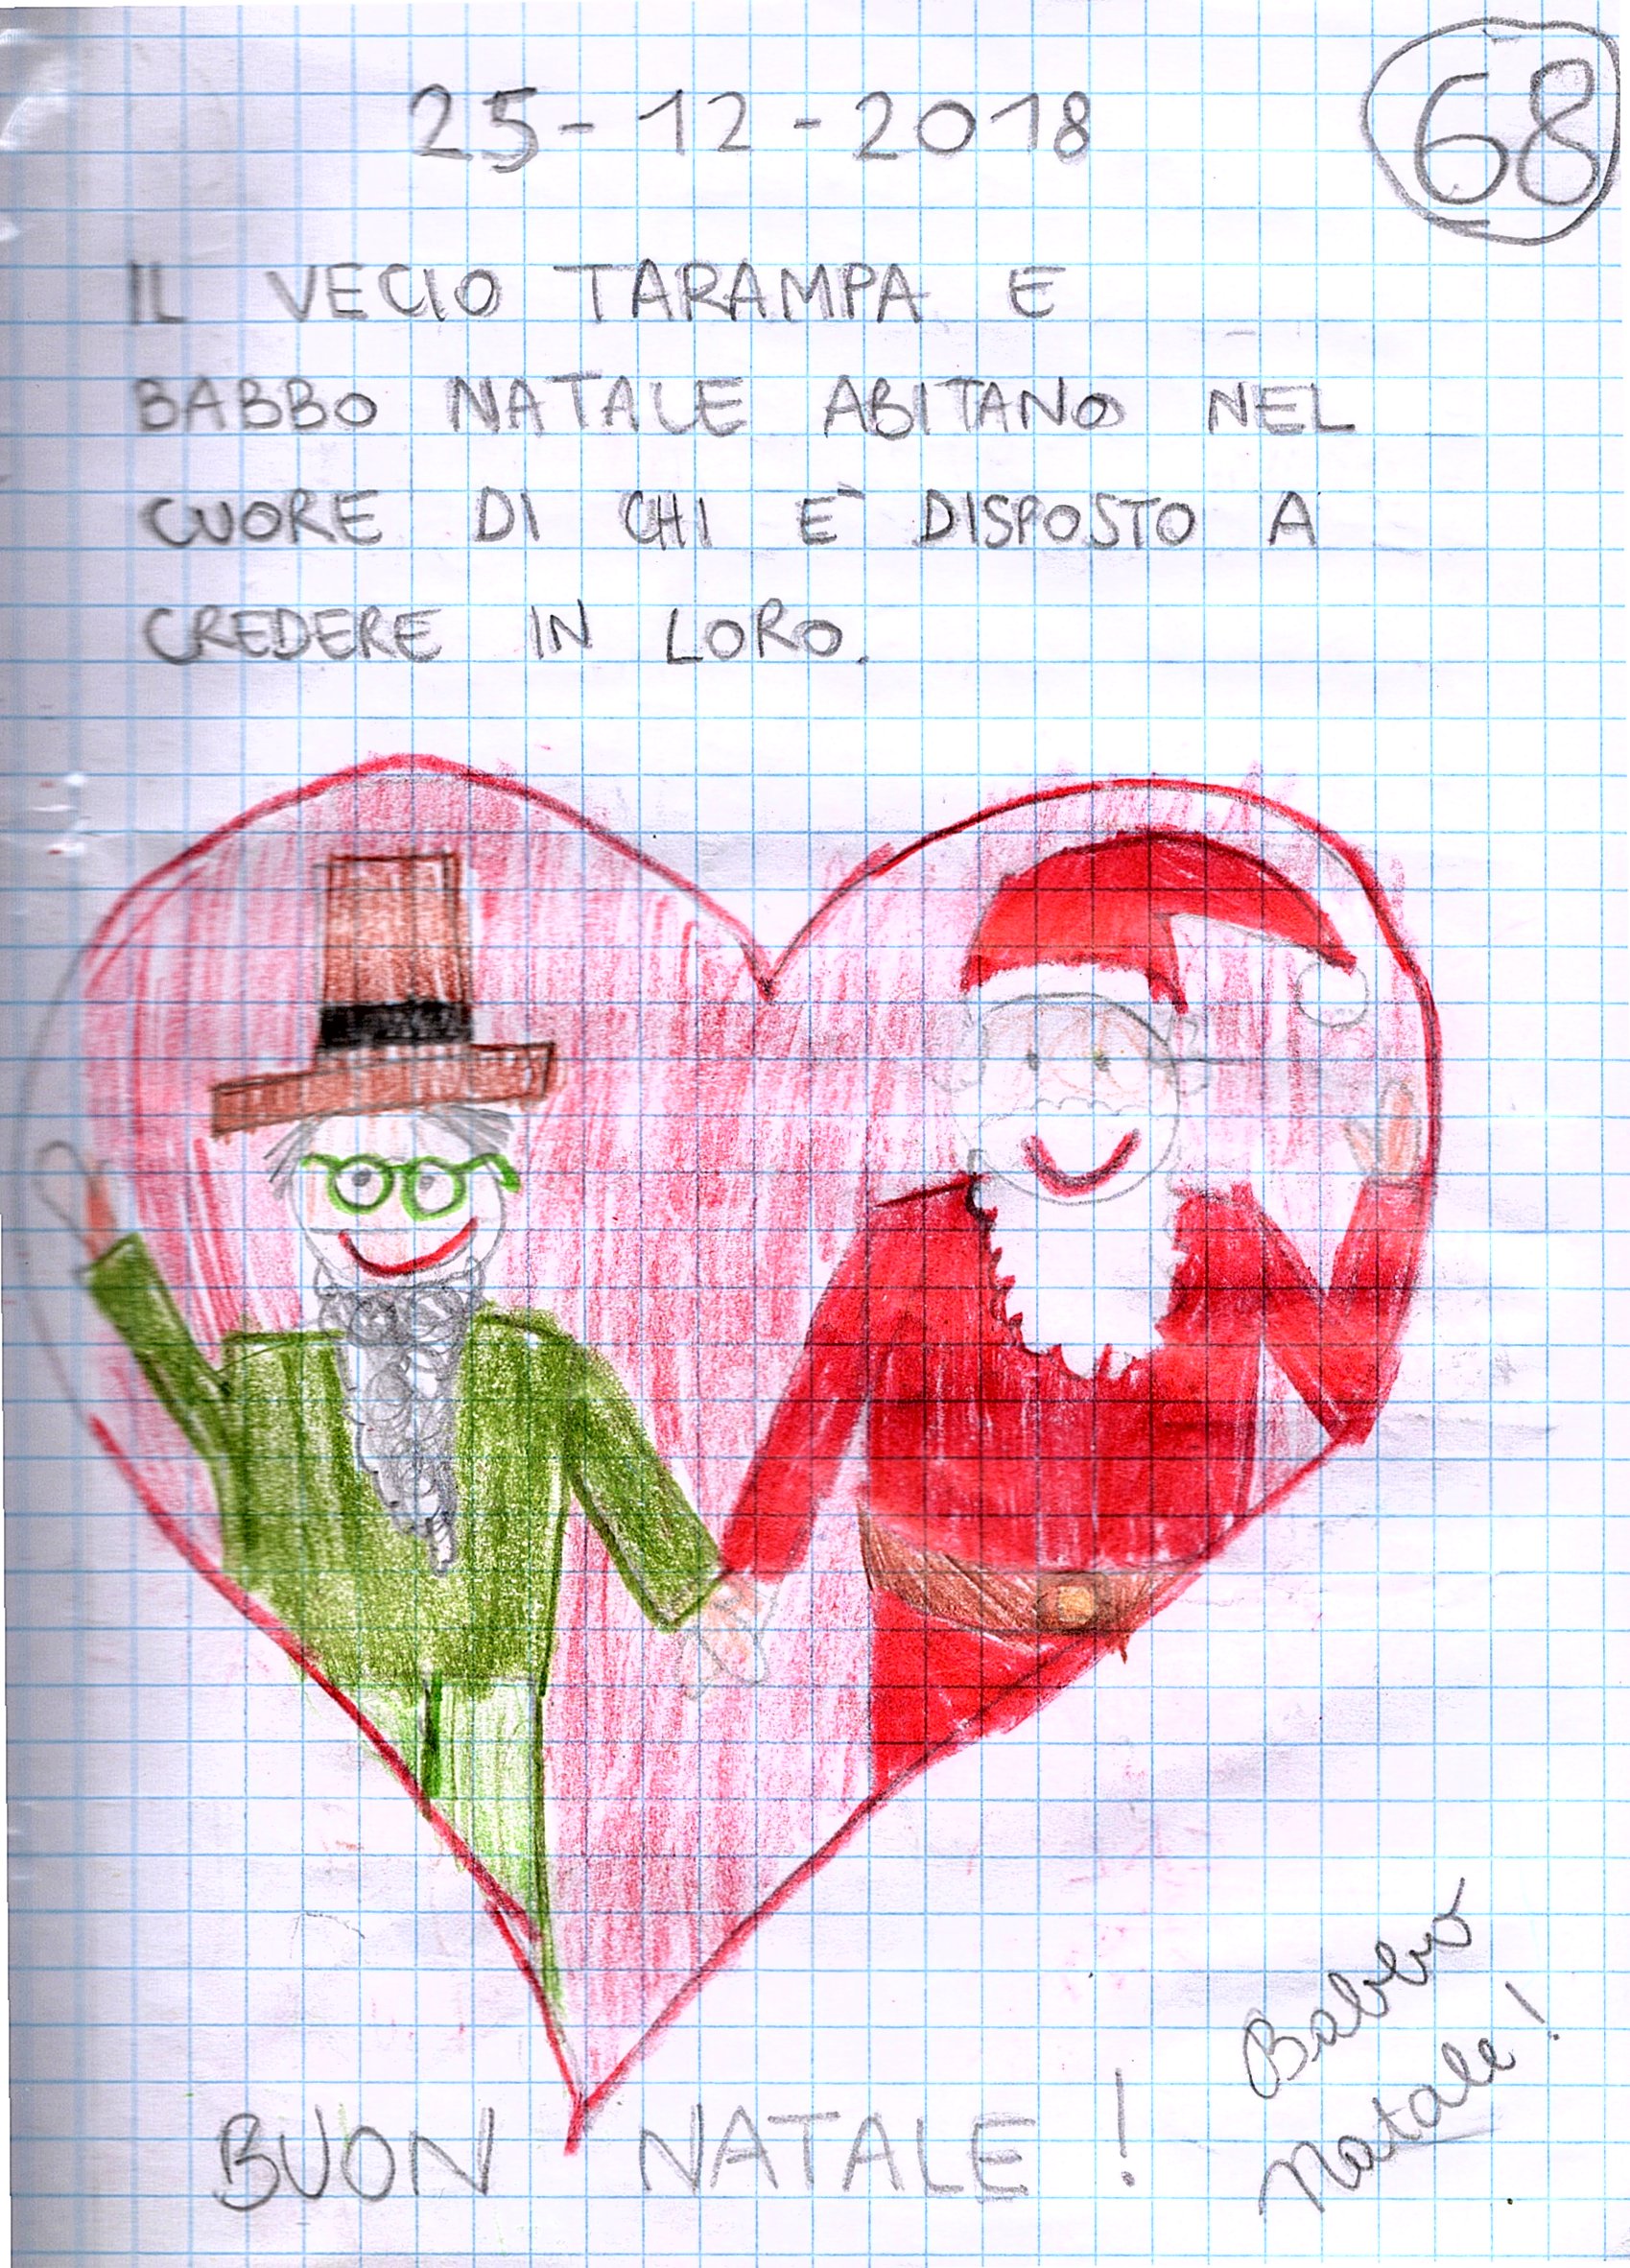 68
25-12-2018
IL VECIO TARAMPA E
BABBO NATALE ABITANO NEL
CUORE DI CHI È DISPOSTO A
CREDERE IN LORO.
BUON NATALE!
Babbo
Natale!